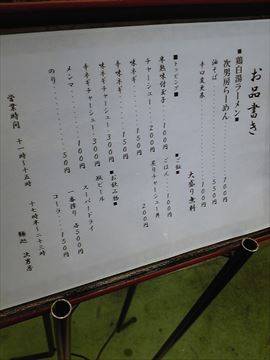 お品書き
■鶏白湯ラーメン■
次男房らーめん 700円
油そば 550円
辛口変更券 100円
大盛り無料
■トッピング■
半熟味付玉子 100円
チャーシュー 200円
味ネギ 150円
辛味ネギ 150円
味ネギチャーシュー 300円
辛ネギチャーシュー 300円
メンマ 100円
のり 50円
■ご飯■
ごはん 100円
炙りチャーシュー丼 200円
■お飲み物■
瓶ビール
スーパードライ
一番搾り 各500円
コーラ 150円
営業時間 十一時〜十五時 十七時半〜二十三時
麺処 次男房